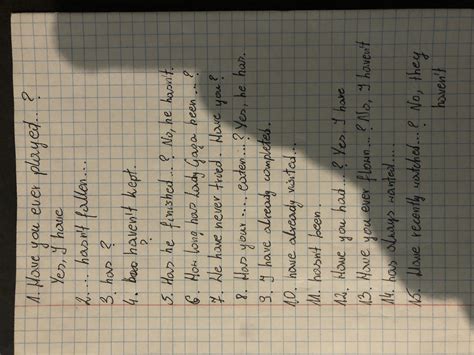 1. Have you ever played...?
Yes, I have
2. .... hasn't fallen....
3. has?
4. haven't kept.
?
5. Has he finished...? No, he hasn't.
6. How long has Lady Gaga been...?
7. We have never tried. Have you?
8. Has your .... eaten...? Yes, he has.
9. I have already completed.
10. have already wasted...
11. hasn't been.
12. Have you had...? Yes, I have
13. Have you ever flown...? No, I haven't
14. has always wanted....
15. Have recently watched...? No, they
haven't